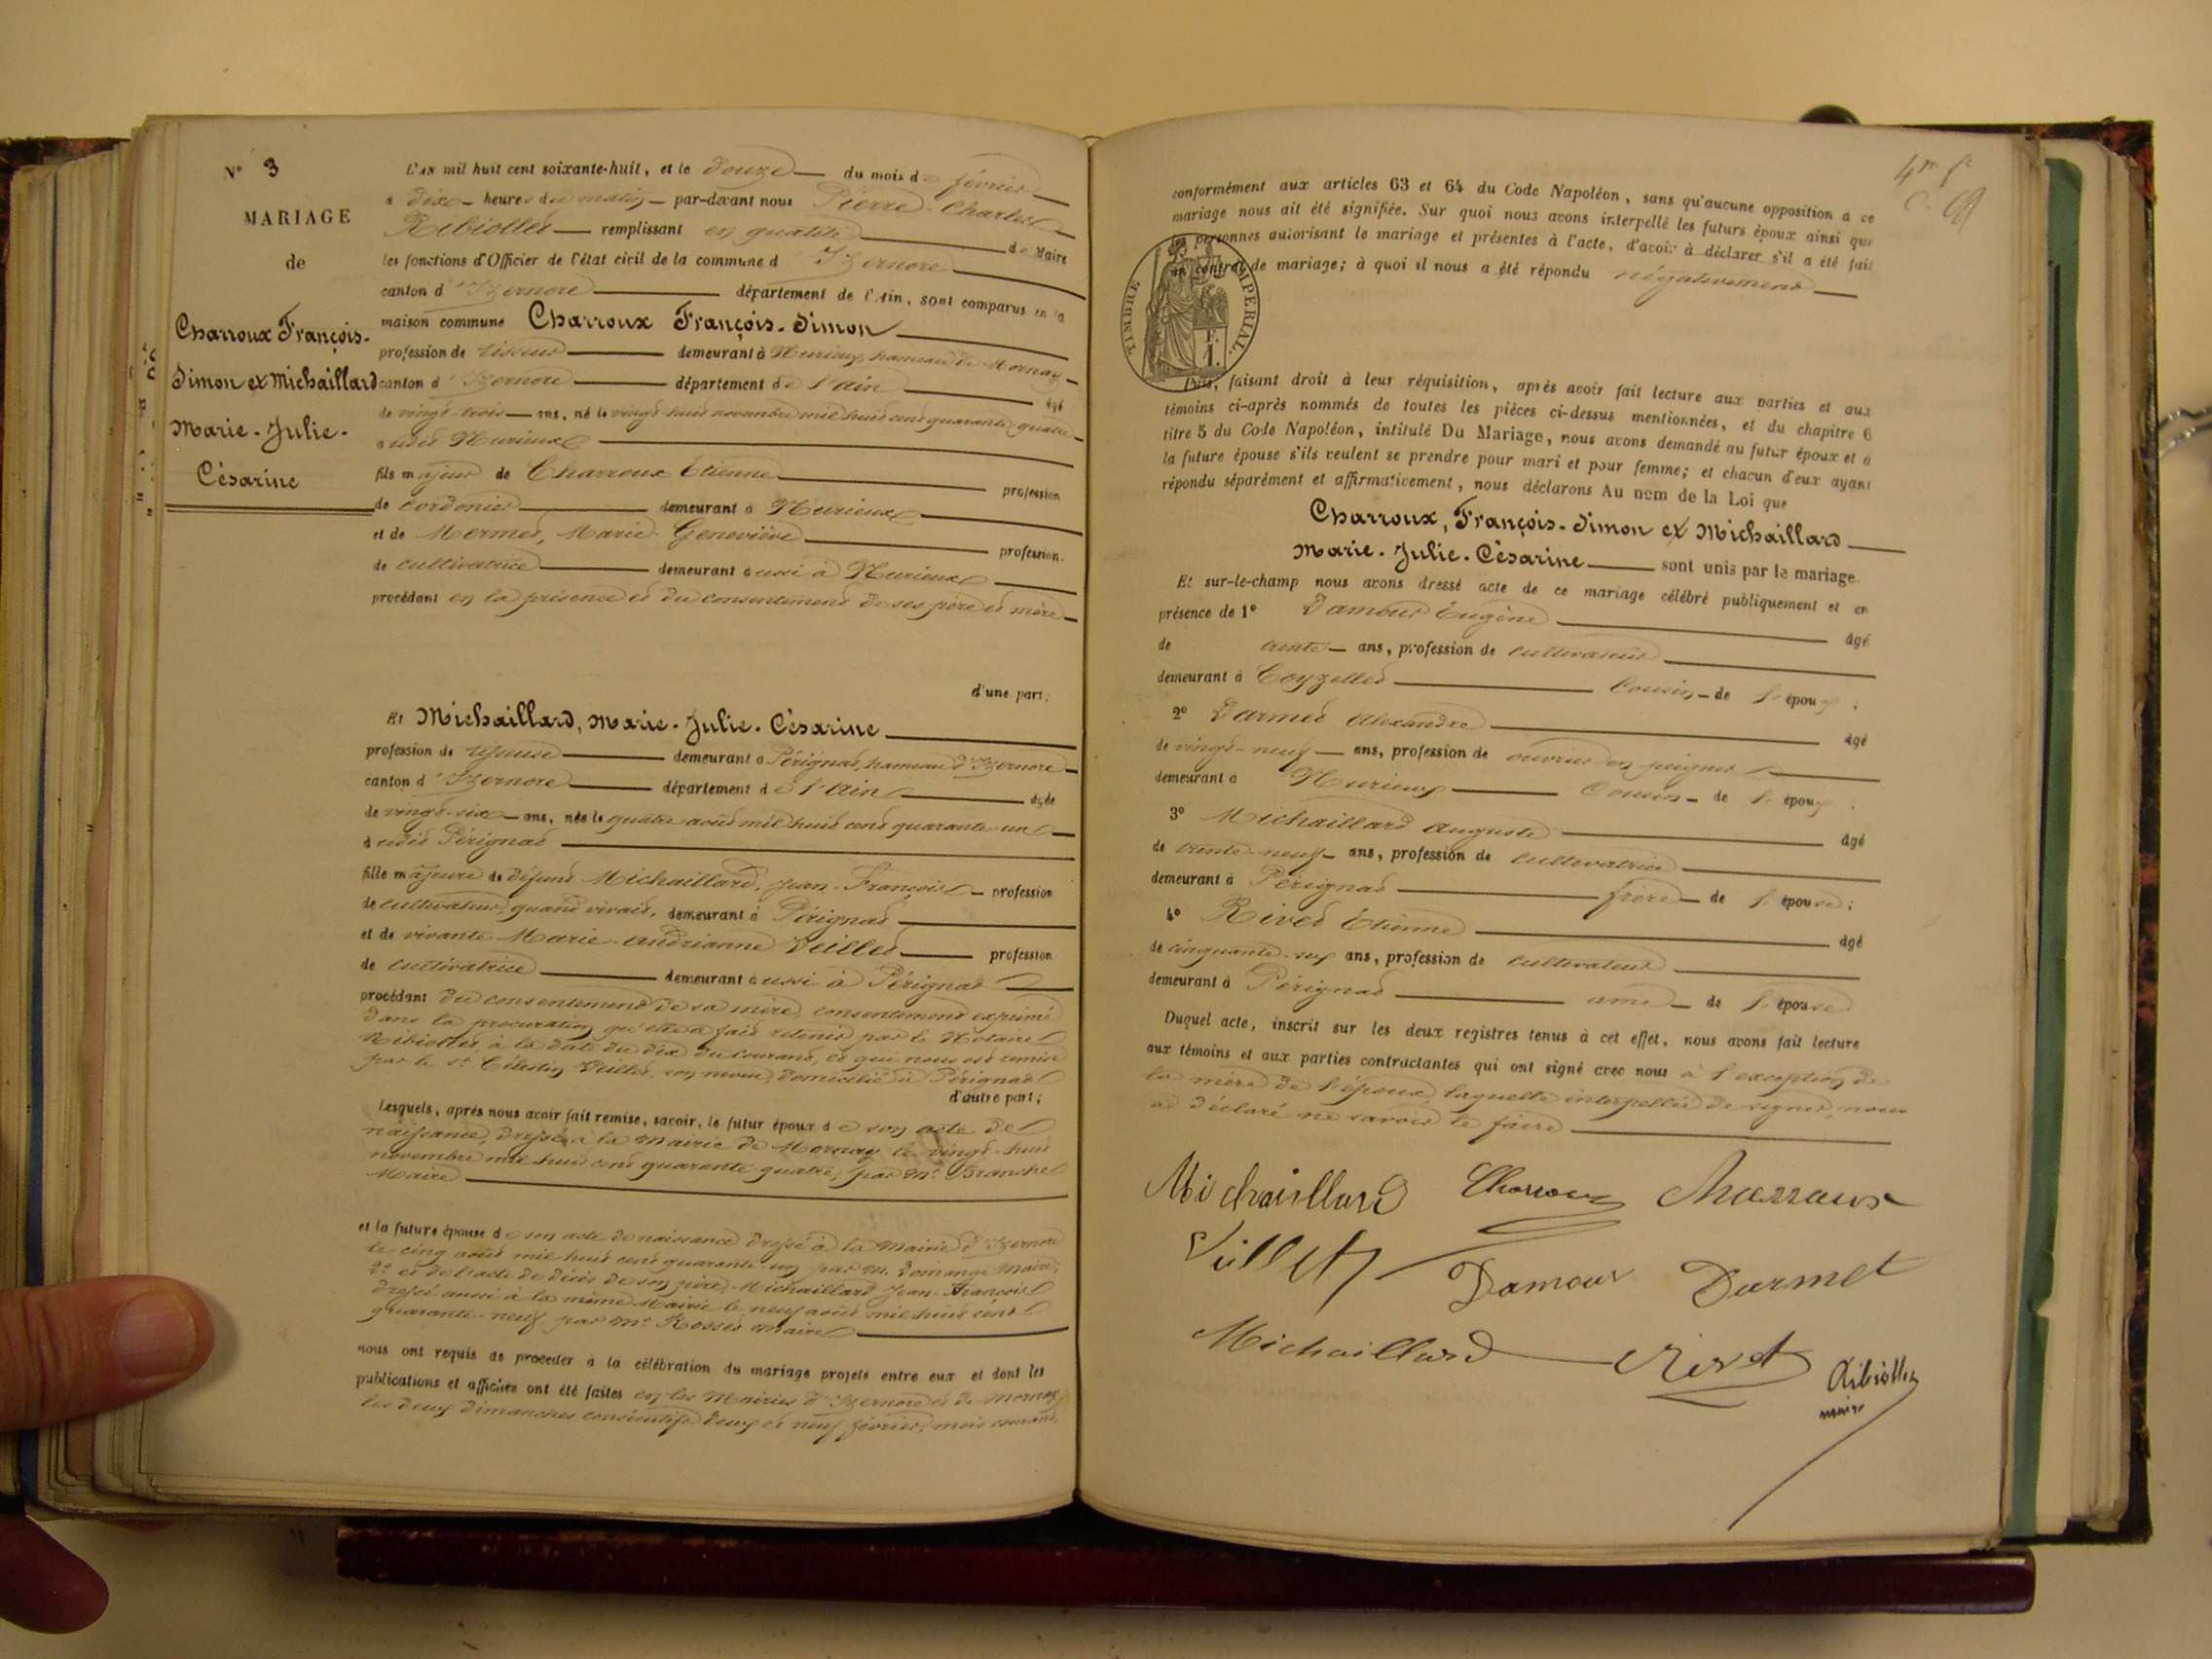 N° 3
MARIAGE
de
Charroux François-
Simon et Michaillard
Marie-Julie-
Césarine
L'AN mil huit cent soixante-huit, et le douze du mois de février
à dix heures du matin par-devant nous Pierre-Charles
Ribiollet remplissant en qualité de Maire
les fonctions d'Officier de l'état civil de la commune d'Izernore
canton d'Izernore département de l'Ain, sont comparus en la
maison commune Charroux François-Simon
profession de tisseur demeurant à Nurieux, hameau de Mornay
canton d'Izernore département de l'ain âgé
de vingt-trois ans, né le vingt-huit novembre mil huit cent quarante-quatre
audit Nurieux
fils majeur de Charroux Étienne profession
de cordonier demeurant à Nurieux
et de Mermet, Marie-Geneviève profession
de cultivatrice demeurant aussi à Nurieux
procédant en la présence et du consentement de ses père et mère
d'une part;
Et Michaillard, Marie-Julie-Césarine
profession de demeurant à Pérignat, hameau d'Izernore
canton d'Izernore département de l'Ain âgée
de vingt-six ans, née le quatre août mil huit cent quarante-un
audit Pérignat
fille majeure de défunt Michaillard, Jean-François profession
de cultivateur, quand vivait, demeurant à Pérignat
et de vivante Marie-Andrianne Veillet profession
de cultivatrice demeurant aussi à Pérignat
procédant du consentement de sa mère, consentement exprimé
dans la procuration qu'elle a fait retenir par le Notaire
Ribiollet à la date du dix du courant, ce qui nous est remis
par le Sr Célestin Veillet, son neveu, domicilié à Pérignat
d'autre part;
Lesquels, après nous avoir fait remise, savoir, le futur époux de son acte de
naissance, dressé à la Mairie de Mornay le vingt-huit
novembre mil huit cent quarante-quatre, par Mr Branche
Maire
et la future épouse de son acte de naissance dressé à la Mairie d'Izernore
le cinq août mil huit cent quarante-un par M. Domange Maire;
2° et de l'acte de décès de son père, Michaillard Jean-François
dressé aussi à la même Mairie le neuf août mil huit cent
quarante-neuf par Mr Rosset maire
nous ont requis de procéder à la célébration du mariage projeté entre eux et dont les
publications et affiches ont été faites en les Mairies d'Izernore et de Mornay
les deux dimanches consécutifs deux et neuf février, mois courant,
conformément aux articles 63 et 64 du Code Napoléon, sans qu'aucune opposition à ce
mariage nous ait été signifiée. Sur quoi nous avons interpellé les futurs époux ainsi que
les personnes autorisant le mariage et présentes à l'acte, d'avoir à déclarer s'il a été fait
un contrat de mariage; à quoi il nous a été répondu négativement
TIMBRE IMPERIAL
F.
1.
Puis, faisant droit à leur réquisition, après avoir fait lecture aux parties et aux
témoins ci-après nommés de toutes les pièces ci-dessus mentionnées, et du chapitre 6
titre 5 du Code Napoléon, intitulé Du Mariage, nous avons demandé au futur époux et à
la future épouse s'ils veulent se prendre pour mari et pour femme; et chacun d'eux ayant
répondu séparément et affirmativement, nous déclarons Au nom de la Loi que
Charroux, François-Simon et Michaillard
Marie-Julie-Césarine sont unis par le mariage.
Et sur-le-champ nous avons dressé acte de ce mariage célébré publiquement et en
présence de 1° Damour Eugène âgé
de trente ans, profession de cultivateur
demeurant à Ceyzelles Cousin de l'époux;
2° Darmet Alexandre âgé
de vingt-neuf ans, profession de ouvrier en peignes
demeurant à Nurieux Cousin de l'époux;
3° Michaillard Auguste âgé
de trente-neuf ans, profession de cultivatrice
demeurant à Pérignat frère de l'épouse;
4° Rivet Étienne âgé
de cinquante-six ans, profession de cultivateur
demeurant à Pérignat ami de l'épouse
Duquel acte, inscrit sur les deux registres tenus à cet effet, nous avons fait lecture
aux témoins et aux parties contractantes qui ont signé avec nous à l'exception de
la mère de l'époux, laquelle interpellée de signer, nous
a déclaré ne savoir le faire
Michaillard Charroux Charroux
Villet Damour Darmet
Michaillard Rivet Ribiollet
maire